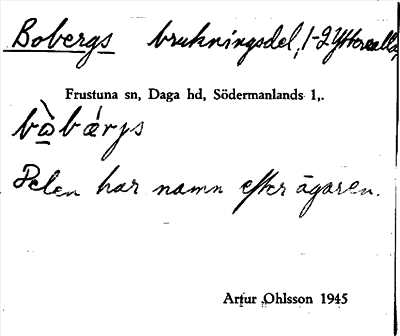 Bobergs brukningsdel, 1-2 Yttervalla,
Frustuna sn, Daga hd, Södermanlands l,.
bò̲bǽrjs
Delen har namn efter ägaren.
Artur Ohlsson 1945